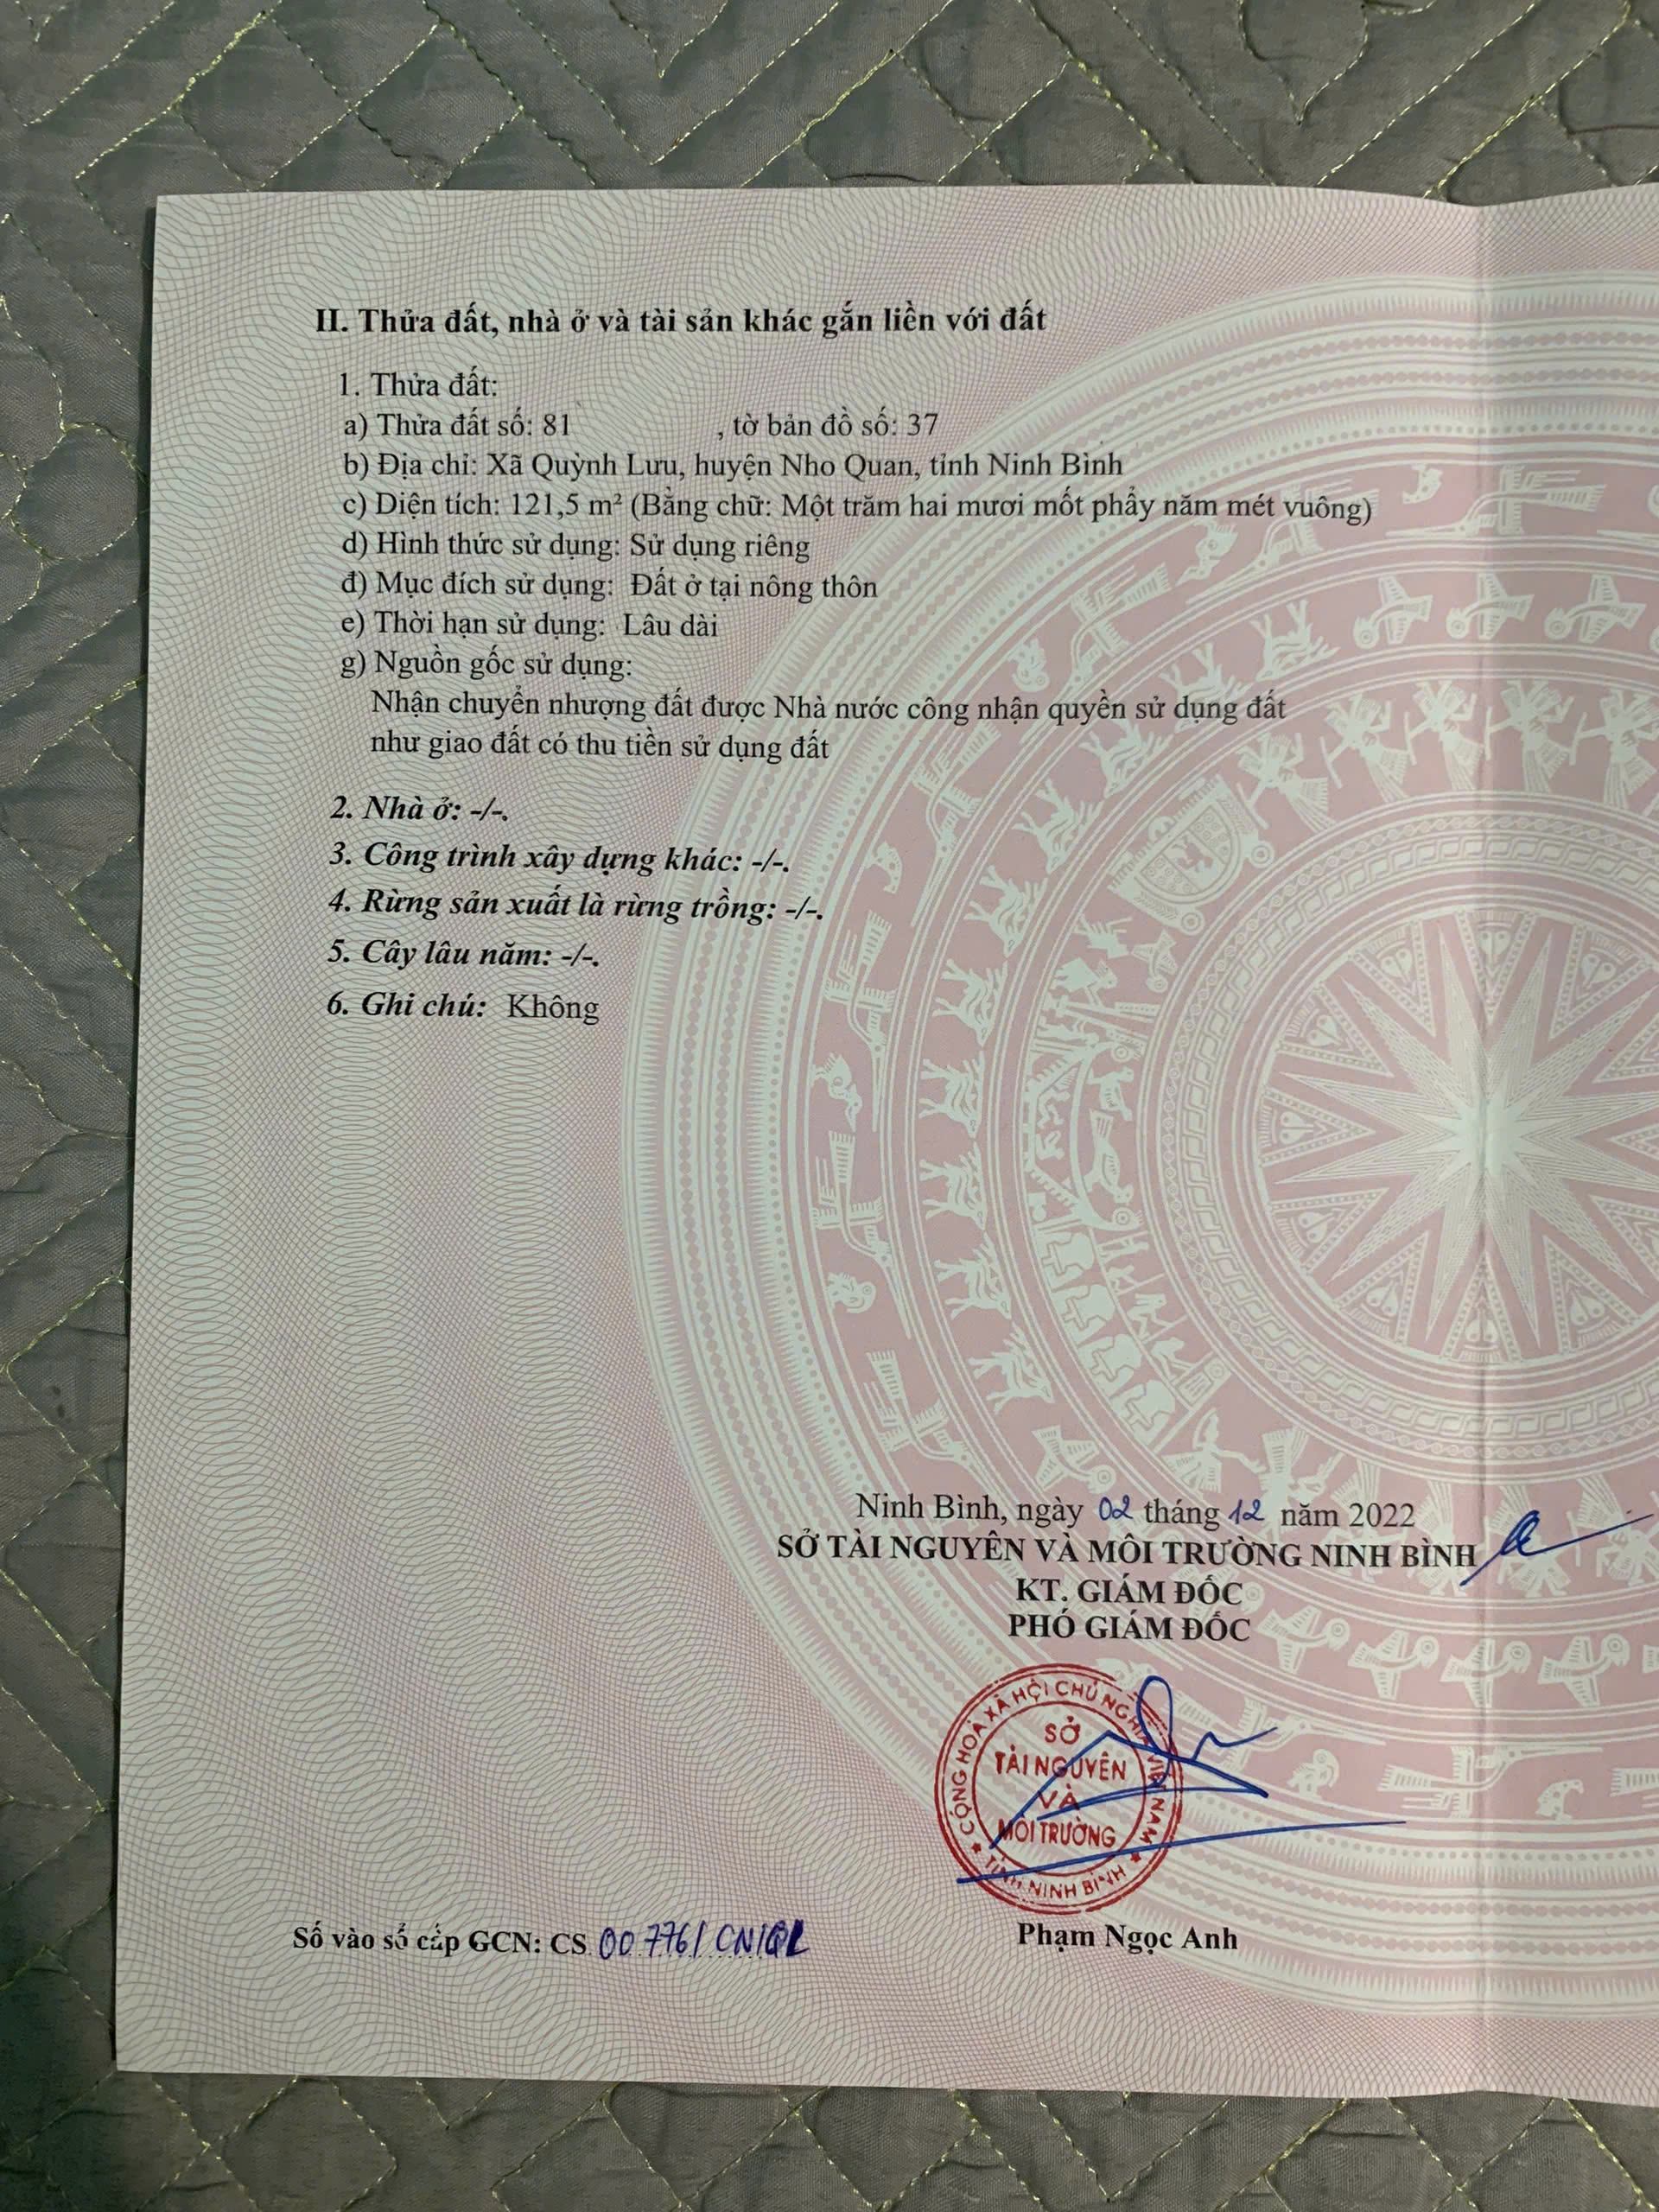 II. Thửa đất, nhà ở và tài sản khác gắn liền với đất
1. Thửa đất:
a) Thửa đất số: 81 , tờ bản đồ số: 37
b) Địa chỉ: Xã Quỳnh Lưu, huyện Nho Quan, tỉnh Ninh Bình
c) Diện tích: 121,5 m² (Bằng chữ: Một trăm hai mươi mốt phẩy năm mét vuông)
d) Hình thức sử dụng: Sử dụng riêng
đ) Mục đích sử dụng: Đất ở tại nông thôn
e) Thời hạn sử dụng: Lâu dài
g) Nguồn gốc sử dụng:
Nhận chuyển nhượng đất được Nhà nước công nhận quyền sử dụng đất
như giao đất có thu tiền sử dụng đất
2. Nhà ở: -/-.
3. Công trình xây dựng khác: -/-.
4. Rừng sản xuất là rừng trồng: -/-.
5. Cây lâu năm: -/-.
6. Ghi chú: Không
Ninh Bình, ngày 02 tháng 12 năm 2022
SỞ TÀI NGUYÊN VÀ MÔI TRƯỜNG NINH BÌNH
KT. GIÁM ĐỐC
PHÓ GIÁM ĐỐC
CỘNG HOÀ XÃ HỘI CHỦ NGHĨA VIỆT NAM
SỞ
TÀI NGUYÊN
VÀ
MÔI TRƯỜNG
TỈNH NINH BÌNH
Số vào sổ cấp GCN: CS 00776/CN/QL
Phạm Ngọc Anh